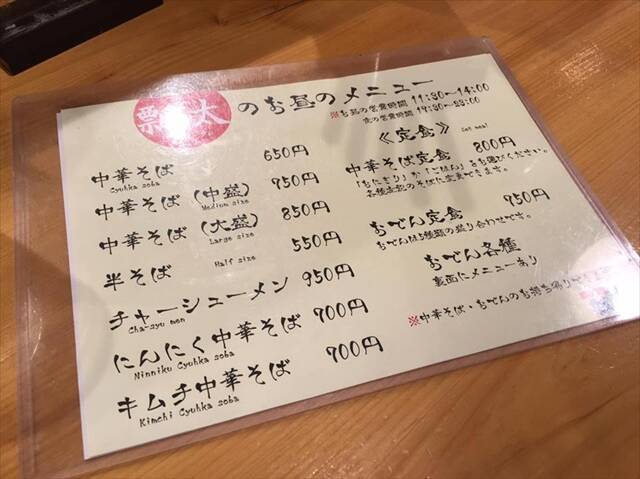 票太 のお昼のメニュー
※お昼の営業時間 11:30〜14:00
夜の営業時間 19:30〜23:00
中華そば 650円
Cyuhka soba
中華そば (中盛) 750円
Medium size
中華そば (大盛) 850円
Large size
半そば 550円
Half size
チャーシューメン 950円
Cha-syu men
にんにく中華そば 700円
Ninniku Cyuhka soba
キムチ中華そば 700円
Kimchi Cyuhka soba
《定食》
Set meal
中華そば定食 800円
「おにぎり」か「ごはん」をお選びください。
各種表記のそばに変更できます。
おでん定食 750円
おでんは5種類の盛り合わせです。
おでん各種
裏面にメニューあり
※中華そば・おでんのお持ち帰り